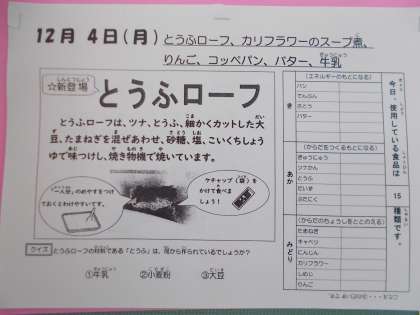 12月 4日(月) とうふローフ、カリフラワーのスープ煮、
りんご、コッペパン、バター、牛乳
しんとうじょう
☆新登場
とうふローフ
とうふローフは、ツナ、とうふ、細かくカットした大
豆、たまねぎを混ぜあわせ、砂糖、塩、こいくちしょう
ゆで味つけし、焼き物機で焼いています。
一人分、のめやすをつけ
ておくとわけやすいです。
ケチャップ(袋)を
かけて食べま
しょう!
クイズ とうふローフの材料である「とうふ」は、何から作られているでしょうか?
①牛乳 ②小麦粉 ③大豆
今日、使用している食品は 15 種類です。
き
(エネルギーのもとになる)
パン
でんぷん
さとう
バター
あか
(からだをつくるもとになる)
ぎゅうにゅう
ツナかん
とうふ
だいず
ぶたにく
みどり
(からだのちょうしをととのえる)
たまねぎ
キャベツ
にんじん
カリフラワー
しめじ
りんご